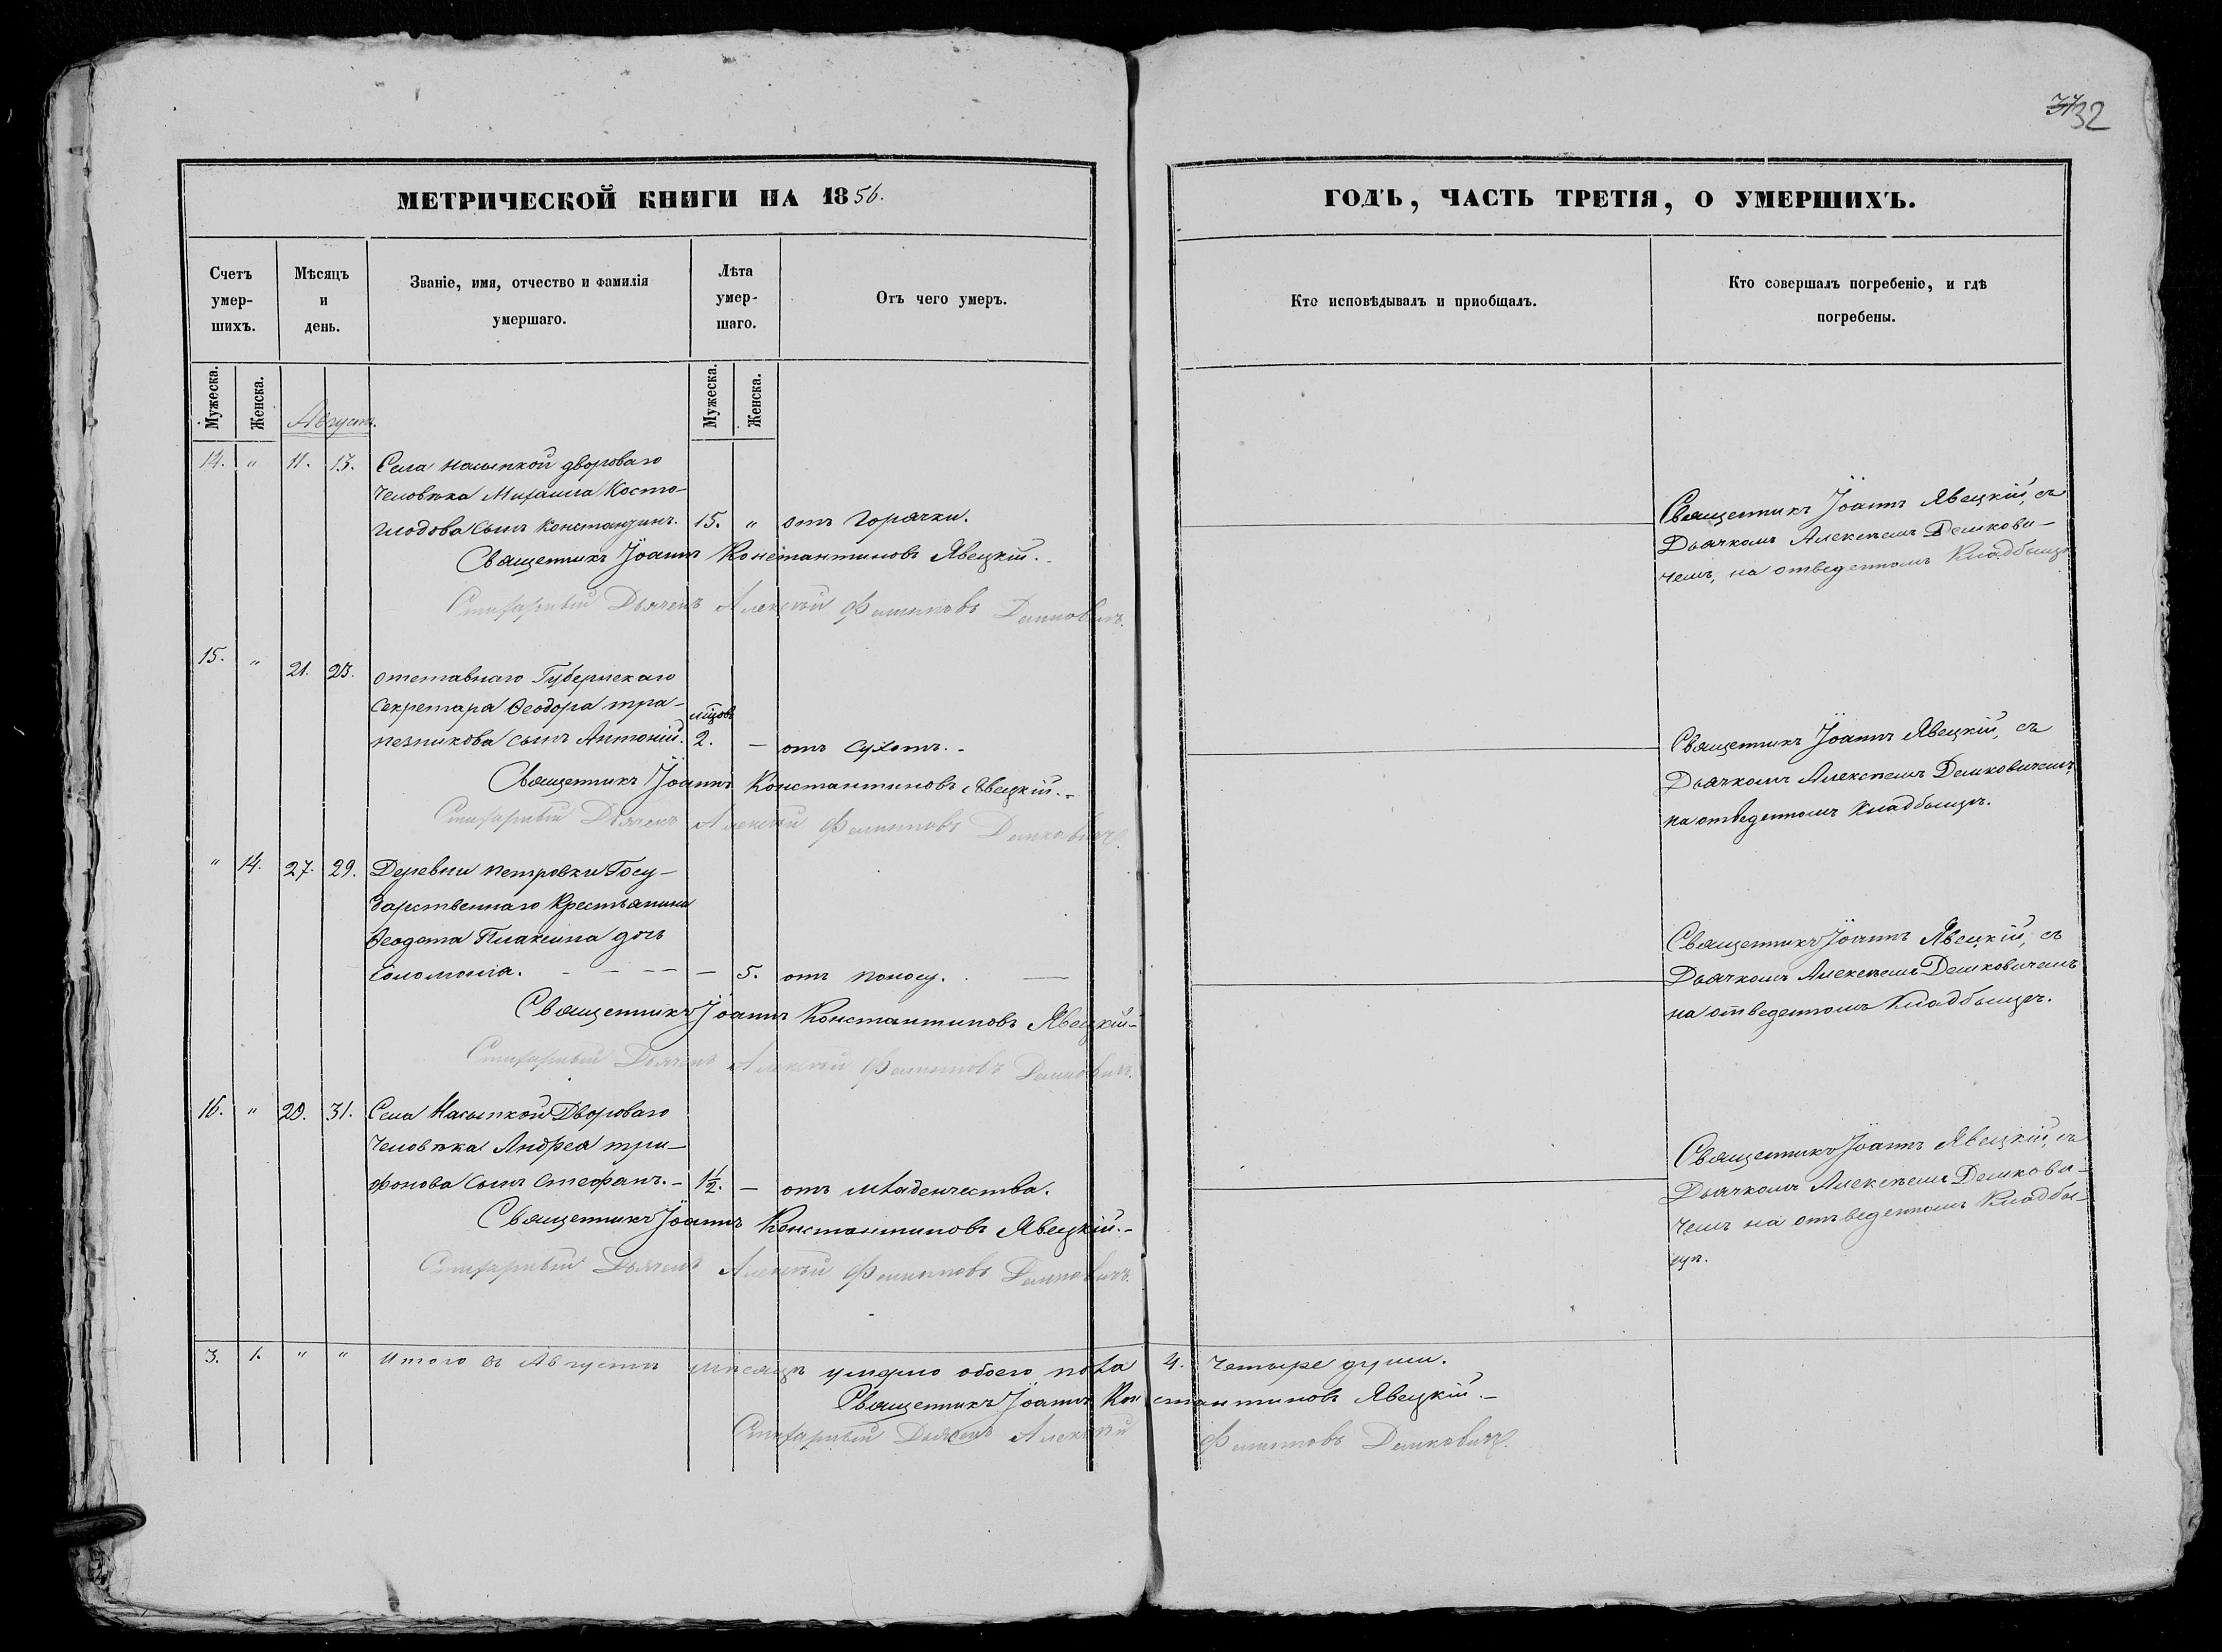 32
МЕТРИЧЕСКОЙ КНИГИ НА 1856.
ГОДЪ, ЧАСТЬ ТРЕТІЯ, О УМЕРШИХЪ.
Счетъ умер-шихъ.
Мѣсяцъ и день.
Званіе, имя, отчество и фамилія умершаго.
Лѣта умер-шаго.
Отъ чего умеръ.
Кто исповѣдывалъ и приобщалъ.
Кто совершалъ погребеніе, и гдѣ погребены.
Мужеска.
Женска.
Августъ.
Мужеска.
Женска.
14. " 11. 13. Села Насыпкой двороваго
человѣка Михаила Косто-
глодова сынъ Константинъ. 15. " отъ горячки.
Священникъ Іоаннъ Константиновъ Явецкій.
Стихарный Дьячекъ Алексѣй Филиповъ Демковичъ.
Священникъ Іоаннъ Явецкій, съ
Дьячкомъ Алексѣемъ Демкови-
чемъ, на отведенномъ Кладбищѣ
15. " 21. 23. отставнаго Губернскаго
Секретаря Ѳеодора тра-
пезникова сынъ Антоній. мцовъ 2. — отъ сухотъ.
Священникъ Іоаннъ Константиновъ Явецкій.
Стихарный Дьячекъ Алексѣй Филиповъ Демковичъ.
Священникъ Іоаннъ Явецкій, съ
Дьячкомъ Алексѣемъ Демковичемъ,
на отведенномъ Кладбищѣ.
" 14. 27. 29. Деревни Петровки Госу-
дарственнаго Крестьянина
Ѳеодота Плаксина дочь
Соломонія. — 5. отъ поносу.
Священникъ Іоаннъ Константиновъ Явецкій
Стихарный Дьячекъ Алексѣй Филиповъ Демковичъ.
Священникъ Іоаннъ Явецкій, съ
Дьячкомъ Алексѣемъ Демковичемъ
на отведенномъ Кладбищѣ.
16. " 29. 31. Села Насыпкой Двороваго
человѣка Андрея три-
фонова сынъ Стефанъ. 1½. — отъ младенчества.
Священникъ Іоаннъ Константиновъ Явецкій.
Стихарный Дьячекъ Алексѣй Филиповъ Демковичъ.
Священникъ Іоаннъ Явецкій, съ
Дьячкомъ Алексѣемъ Демкови-
чемъ на отведенномъ Кладби-
щѣ.
3. 1. " " Итого въ Августѣ мѣсяцѣ умерло обоего пола 4. четыре души.
Священникъ Іоаннъ Константиновъ Явецкій.
Стихарный Дьячекъ Алексѣй Филиповъ Демковичъ.